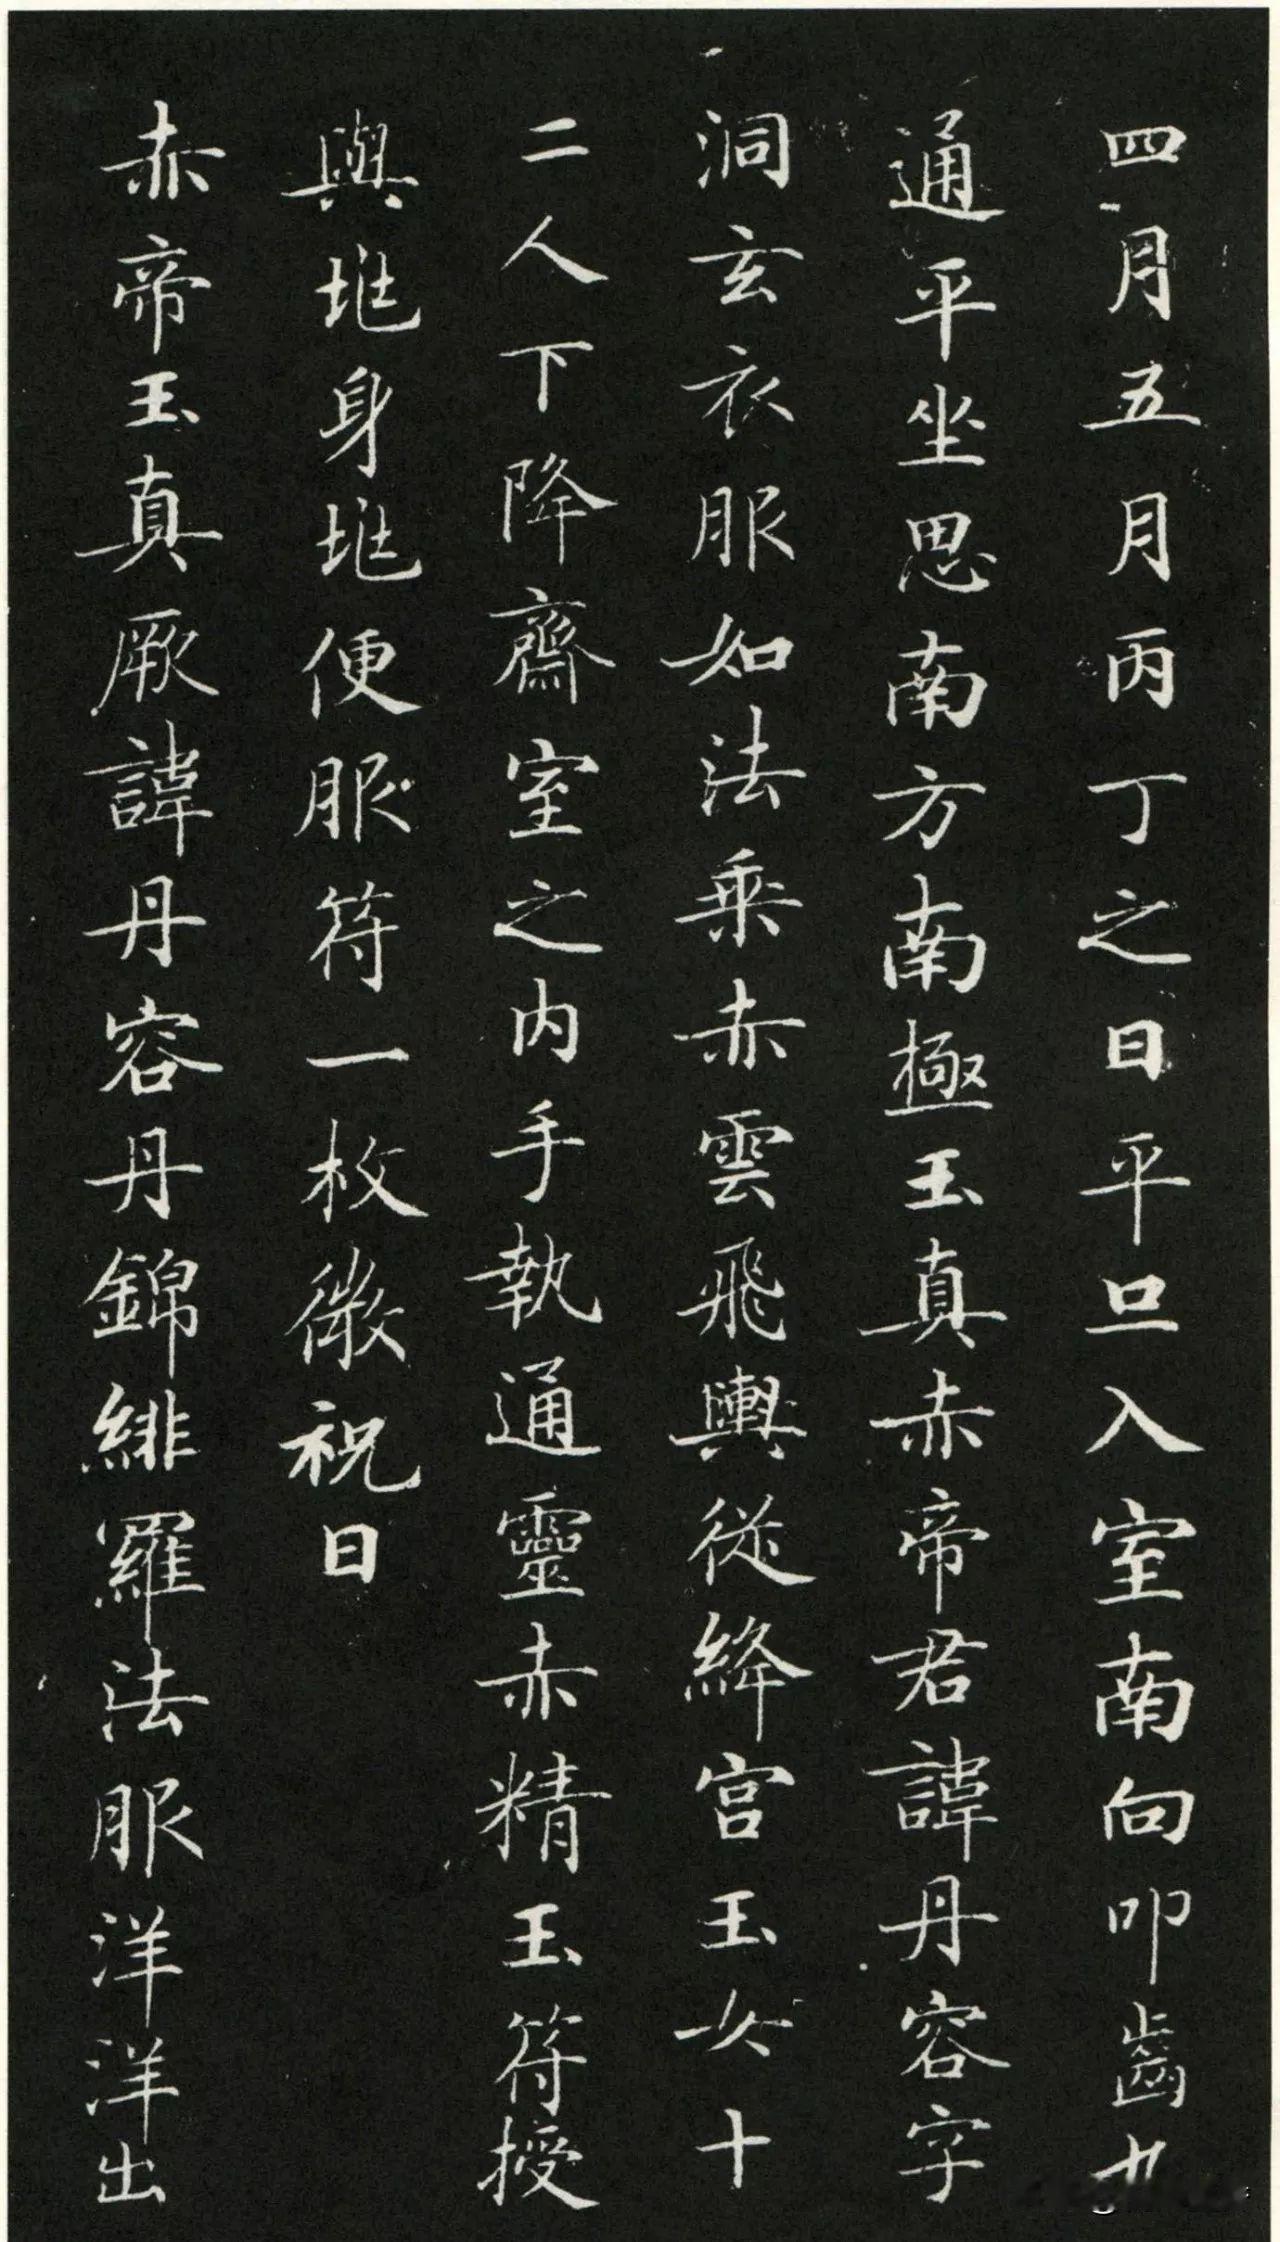 四月五月丙丁之日平旦入室南向叩齒九
通平坐思南方南極玉真赤帝君諱丹容字
洞玄衣服如法乘赤雲飛輿從絳宫玉女十
二人下降齋室之内手執通靈赤精玉符授
與兆身兆便服符一枚微祝曰
赤帝玉真厥諱丹容丹錦緋羅法服洋洋出